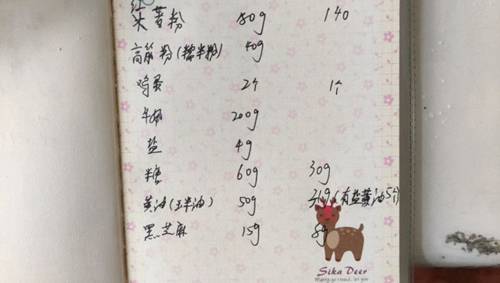 木薯粉 80g 140
高筋粉(糯米粉) 40g
鸡蛋 2个 1个
牛奶 200g
盐 4g
糖 60g 30g
黄油(玉米油) 50g (有盐黄油
黑芝麻 15g 8g
Sika Deer